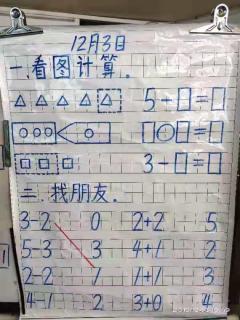 12月3日
一.看图计算.
5+□=□
□○□=□
3-□=□
二.找朋友.
3-2 0 2+2 5
5-3 3 4+1 2
2-2 1 1+1 3
4-1 2 3+0 4